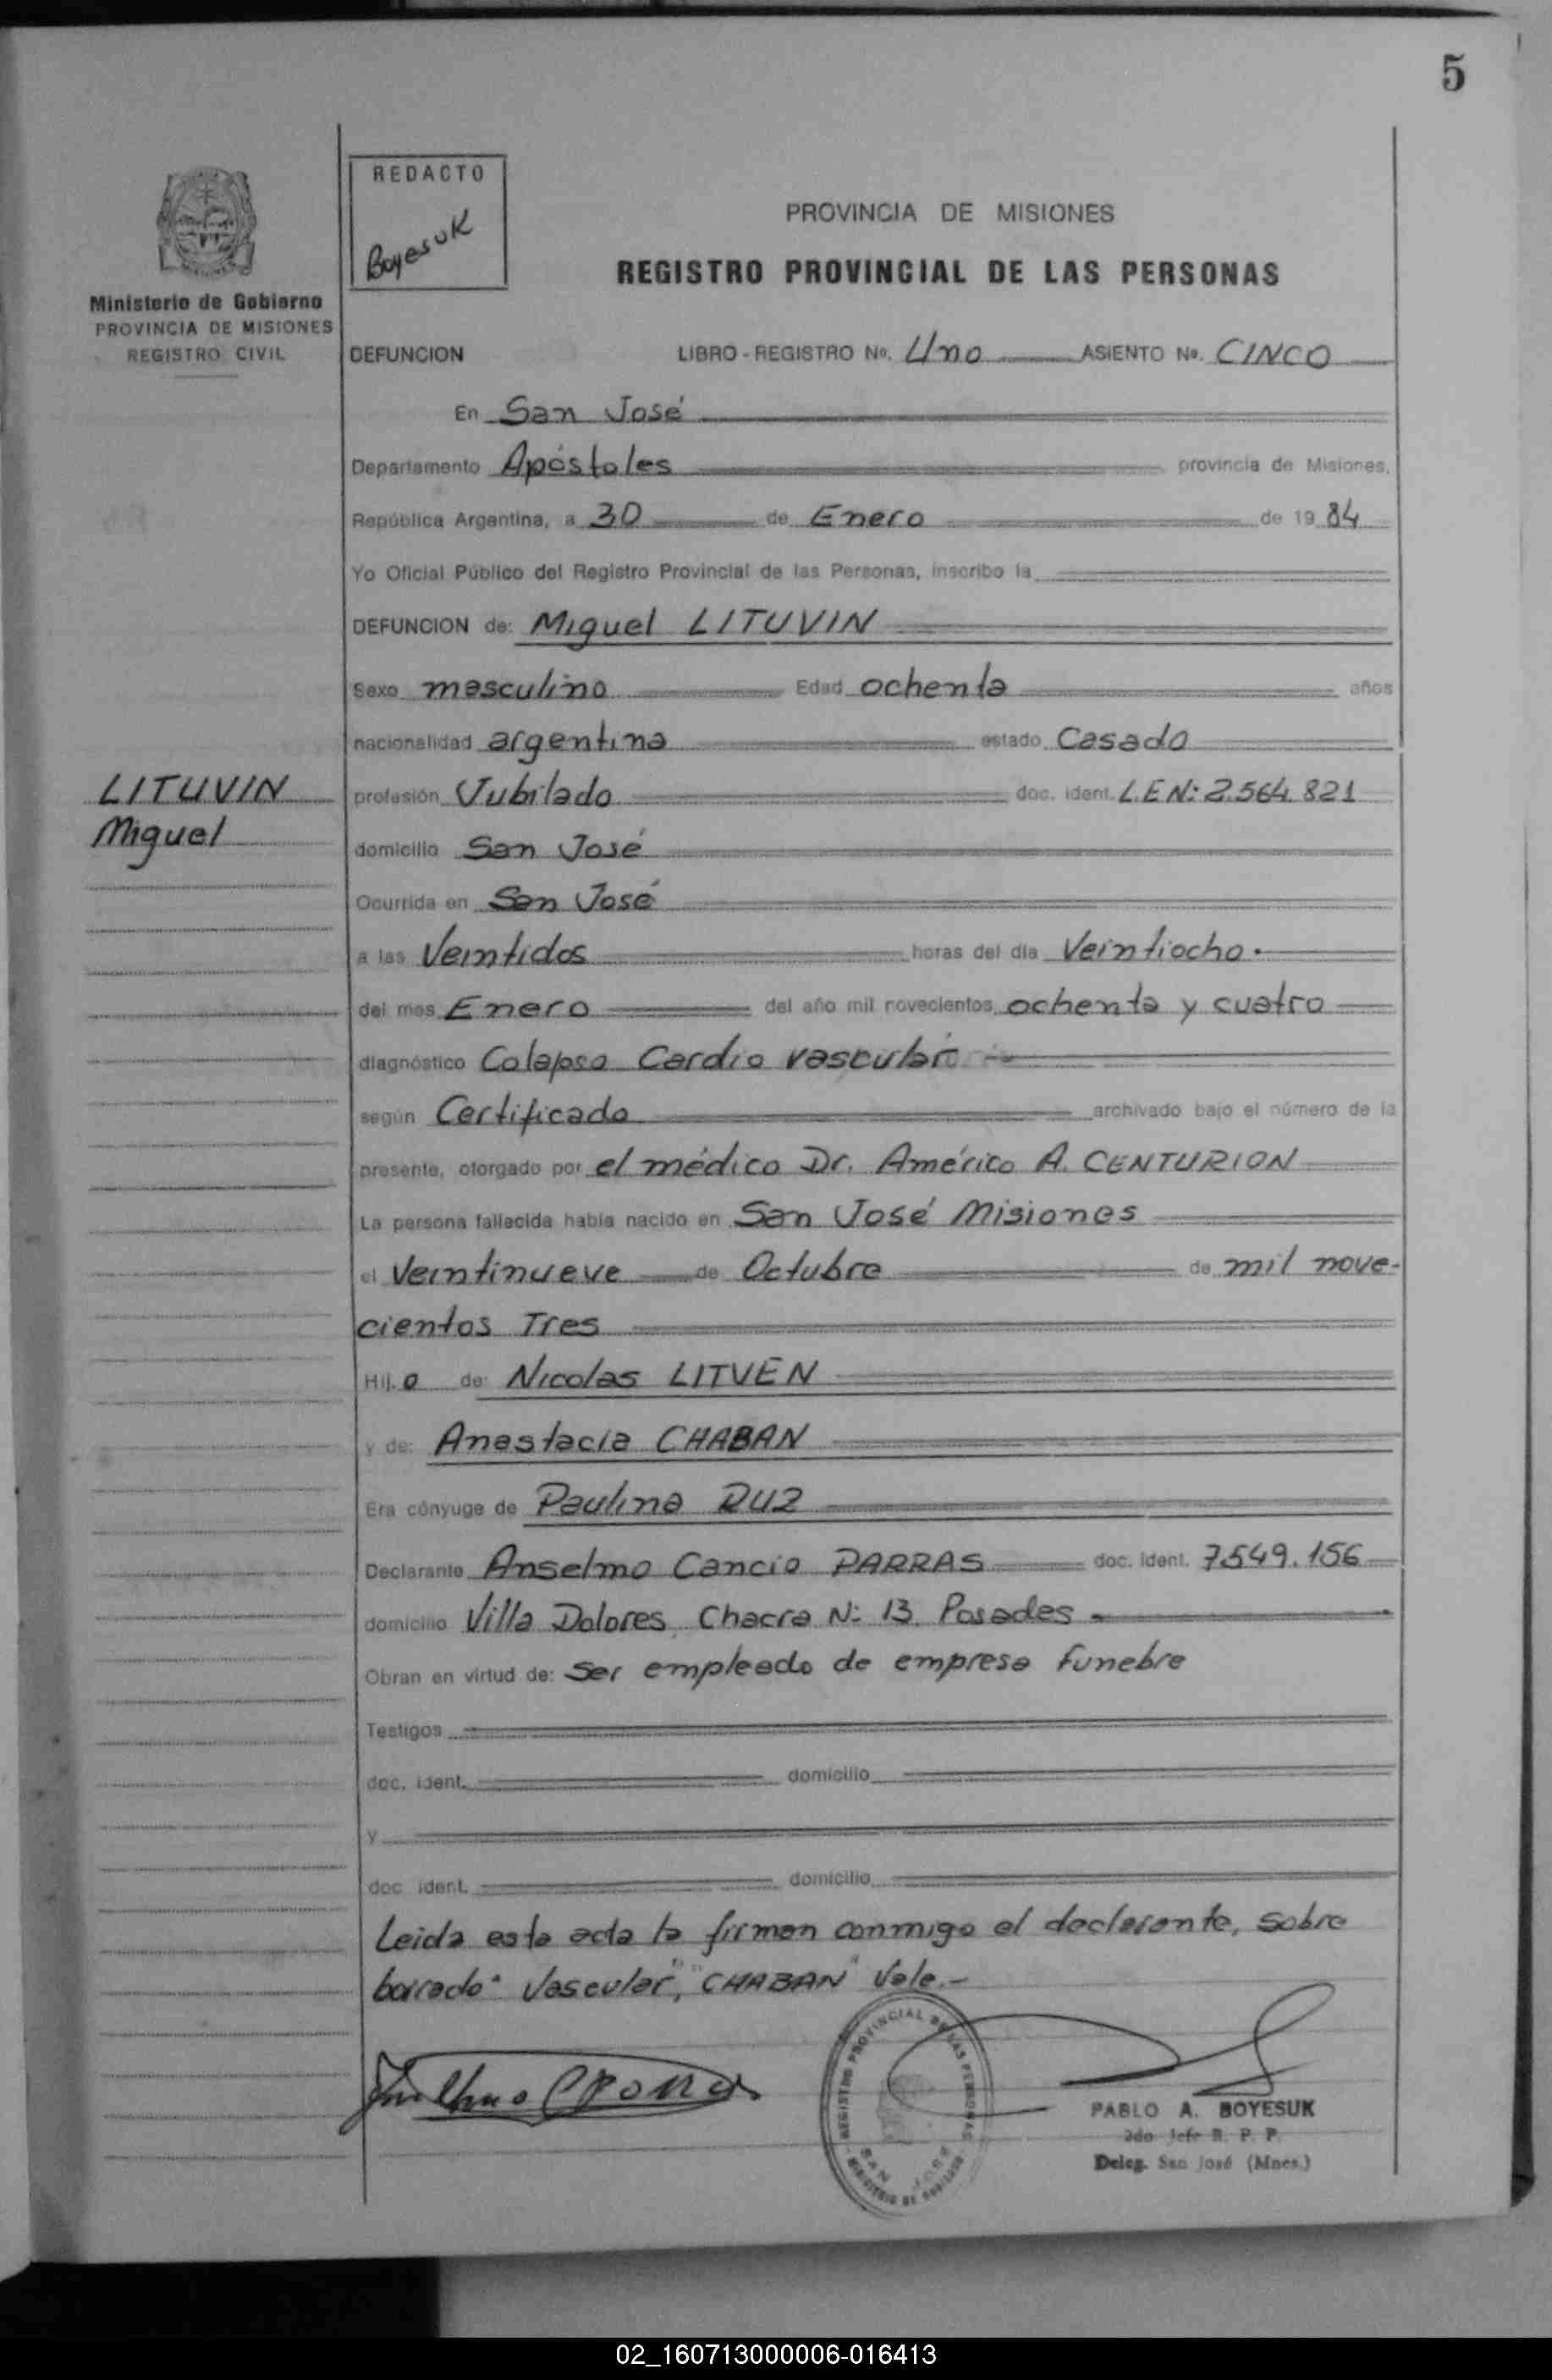 5
REDACTO
Boyesuk
PROVINCIA DE MISIONES
REGISTRO PROVINCIAL DE LAS PERSONAS
Ministerio de Gobierno
PROVINCIA DE MISIONES
REGISTRO CIVIL
DEFUNCION LIBRO - REGISTRO Nº. Uno ASIENTO Nº. CINCO
En San José
Departamento Apóstoles provincia de Misiones,
República Argentina, a 30 de Enero de 19 84
Yo Oficial Público del Registro Provincial de las Personas, inscribo la
DEFUNCION de: Miguel LITUVIN
Sexo masculino Edad ochenta años
nacionalidad argentina estado Casado
LITUVIN
Miguel
profesión Jubilado doc. ident. L.E N: 2.564.821
domicilio San José
Ocurrida en San José
a las Veintidos horas del día Veintiocho.
del mes Enero del año mil novecientos ochenta y cuatro
diagnóstico Colapso Cardio vascular
según Certificado archivado bajo el número de la
presente, otorgado por el médico Dr. Américo A. CENTURION
La persona fallecida había nacido en San José Misiones
el Veintinueve de Octubre de mil nove-
cientos Tres
Hij.o de: Nicolas LITVEN
y de: Anastacia CHABAN
Era cónyuge de Paulina DUZ
Declarante Anselmo Cancio PARRAS doc. ident. 7.549.156
domicilio Villa Dolores Chacra N: 13 Posadas
Obran en virtud de: Ser empleado de empresa funebre
Testigos
doc. ident. domicilio
y
doc ident. domicilio
Leida esta acta la firman conmigo el declarante, sobre
borrado "Vascular", "CHABAN" Vale.-
REGISTRO PROVINCIAL DE LAS PERSONAS
SAN JOSE
MINISTERIO DE GOBIERNO
PABLO A. BOYESUK
2do Jefe R. P. P.
Deleg. San José (Mnes.)
02_160713000006-016413